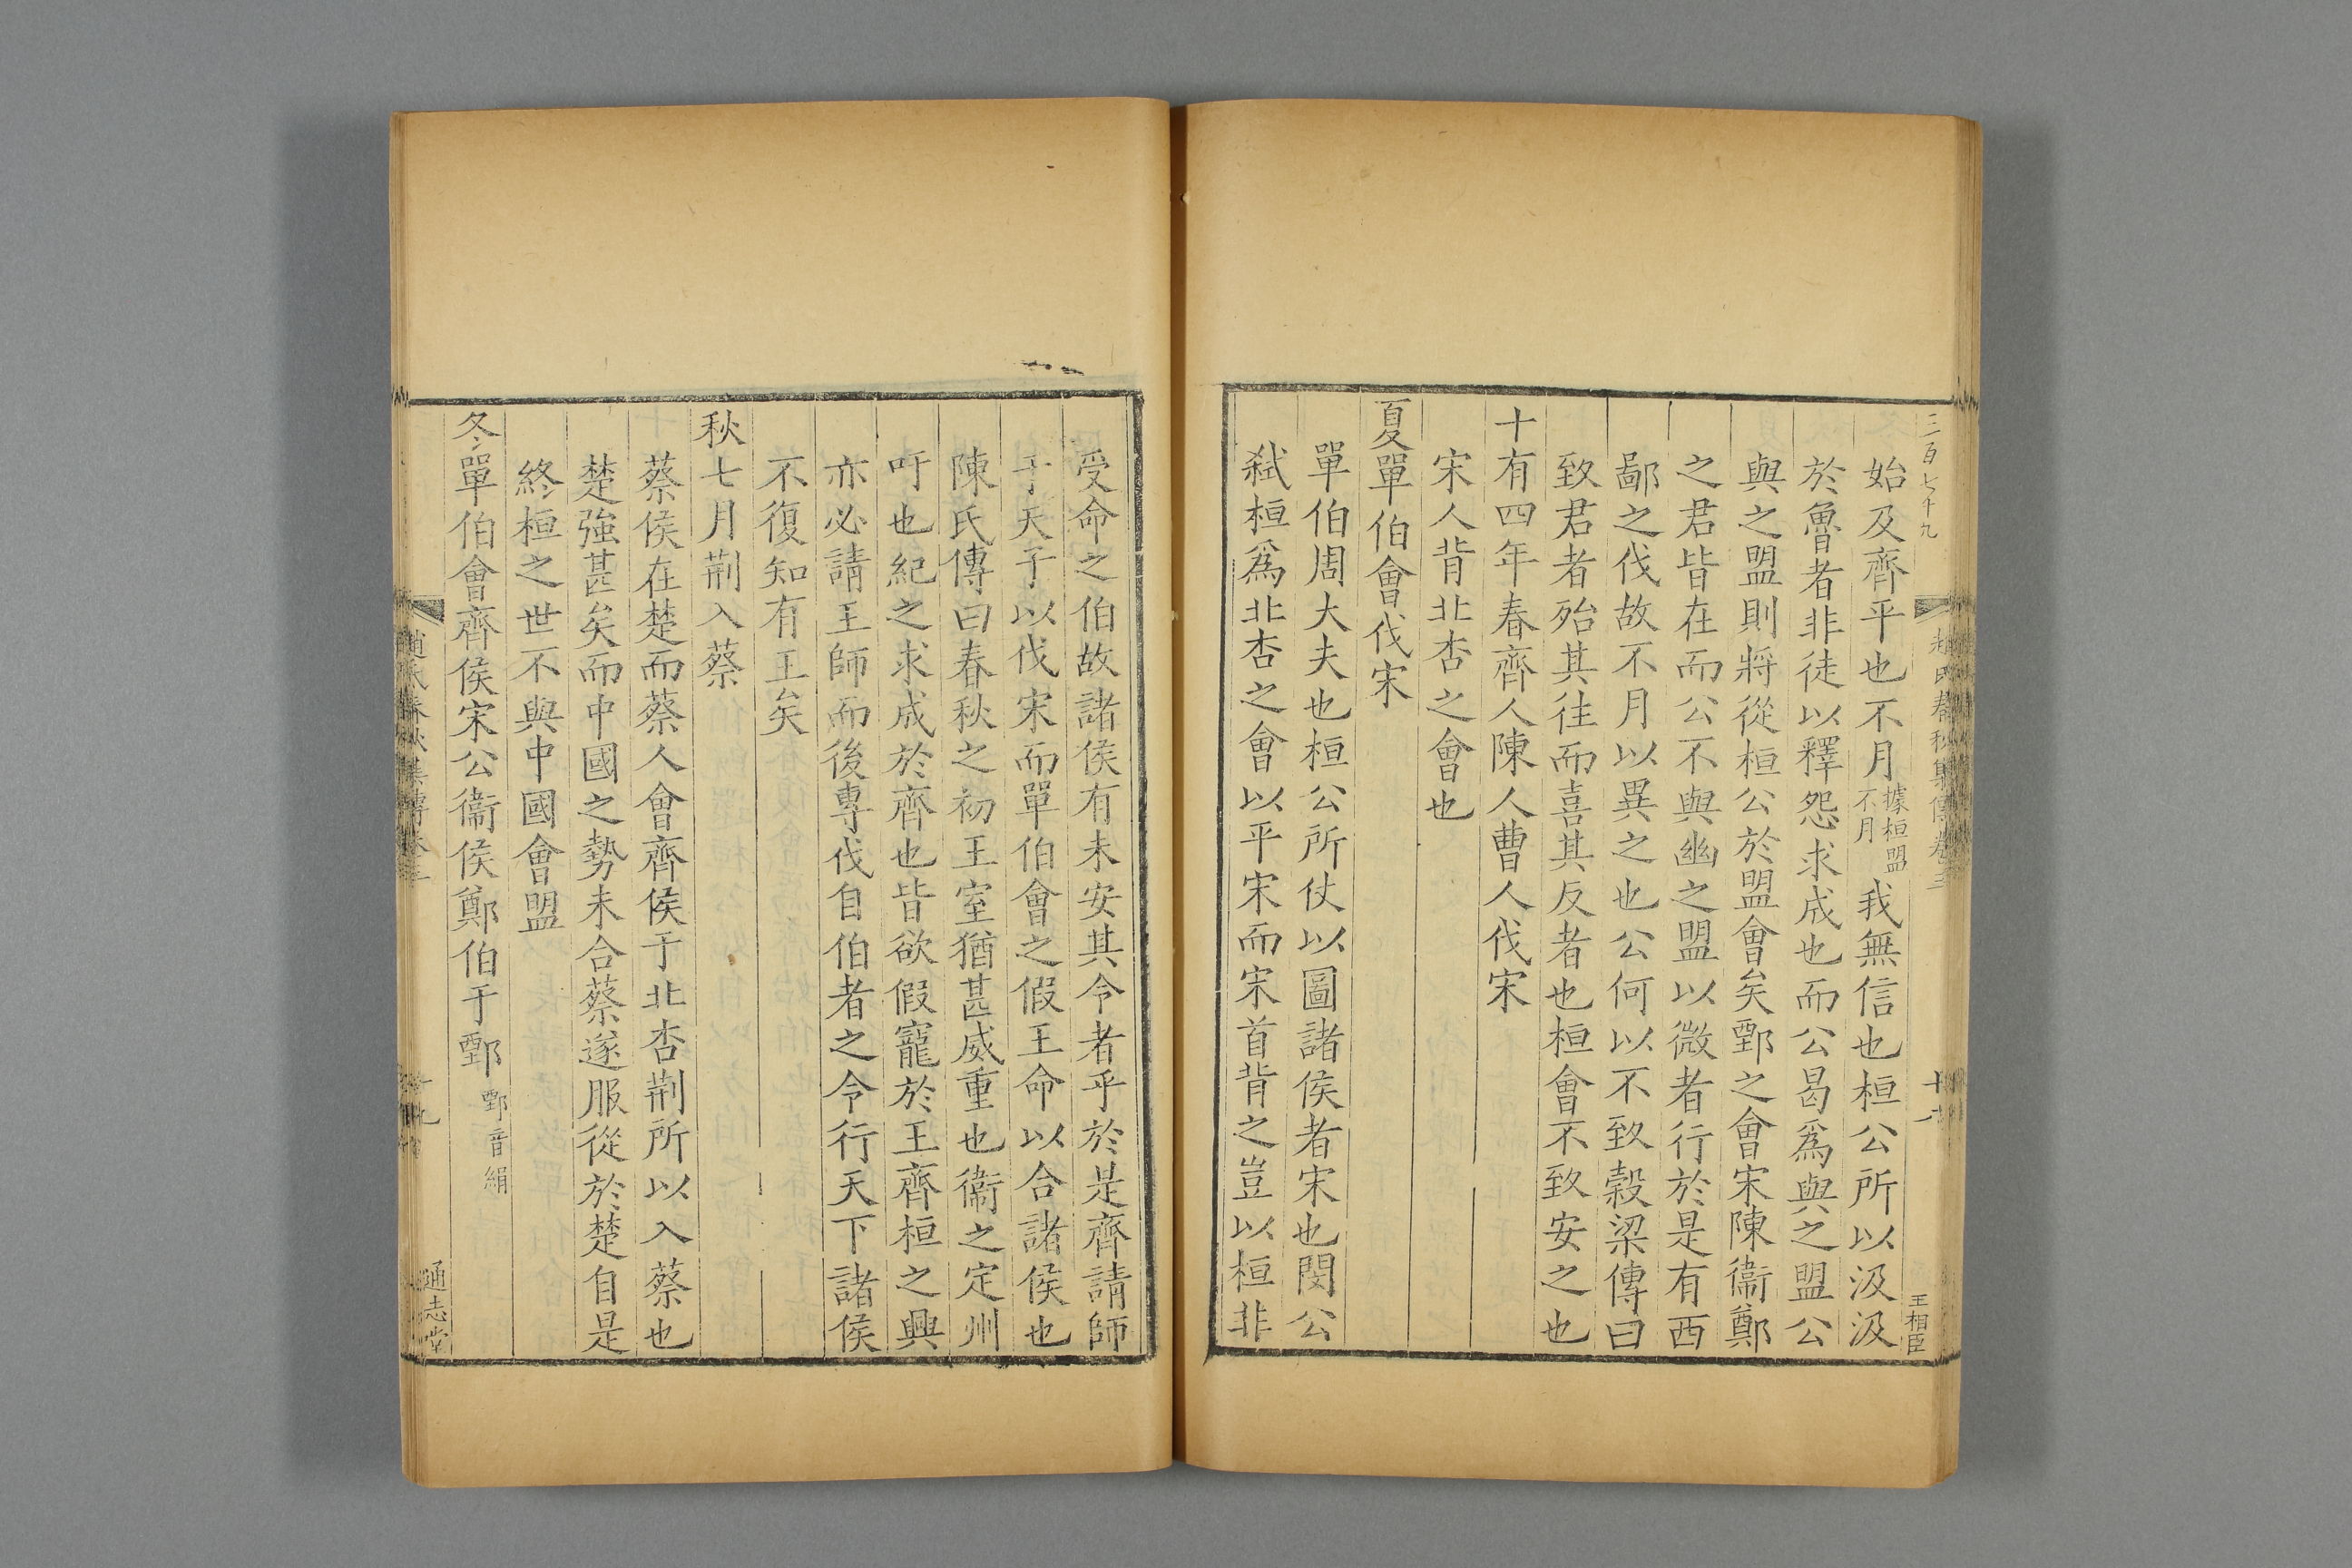 三百七十九
趙氏春秋集傳卷三
王相臣
始及齊平也不月據桓盟不月我無信也桓公所以汲汲
於魯者非徒以釋怨求成也而公曷爲與之盟公
與之盟則將從桓公於盟會矣鄄之會宋陳衞鄭
之君皆在而公不與幽之盟以微者行於是有西
鄙之伐故不月以異之也公何以不致榖梁傳曰
致君者殆其往而喜其反者也桓會不致安之也
十有四年春齊人陳人曹人伐宋
宋人背北杏之會也
夏單伯會伐宋
單伯周大夫也桓公所仗以圖諸侯者宋也閔公
弑桓爲北杏之會以平宋而宋首背之豈以桓非
受命之伯故諸侯有未安其令者乎於是齊請師
于天子以伐宋而單伯會之假王命以合諸侯也
陳氏傳曰春秋之初王室猶甚威重也衞之定州
吁也紀之求成於齊也皆欲假寵於王齊桓之興
亦必請王師而後專伐自伯者之令行天下諸侯
不復知有王矣
秋七月荆入蔡
蔡侯在楚而蔡人會齊侯于北杏荆所以入蔡也
楚強甚矣而中國之勢未合蔡遂服從於楚自是
終桓之世不與中國會盟
冬單伯會齊侯宋公衞侯鄭伯于鄄鄄音絹
趙氏春秋集傳卷三
十九
通志堂